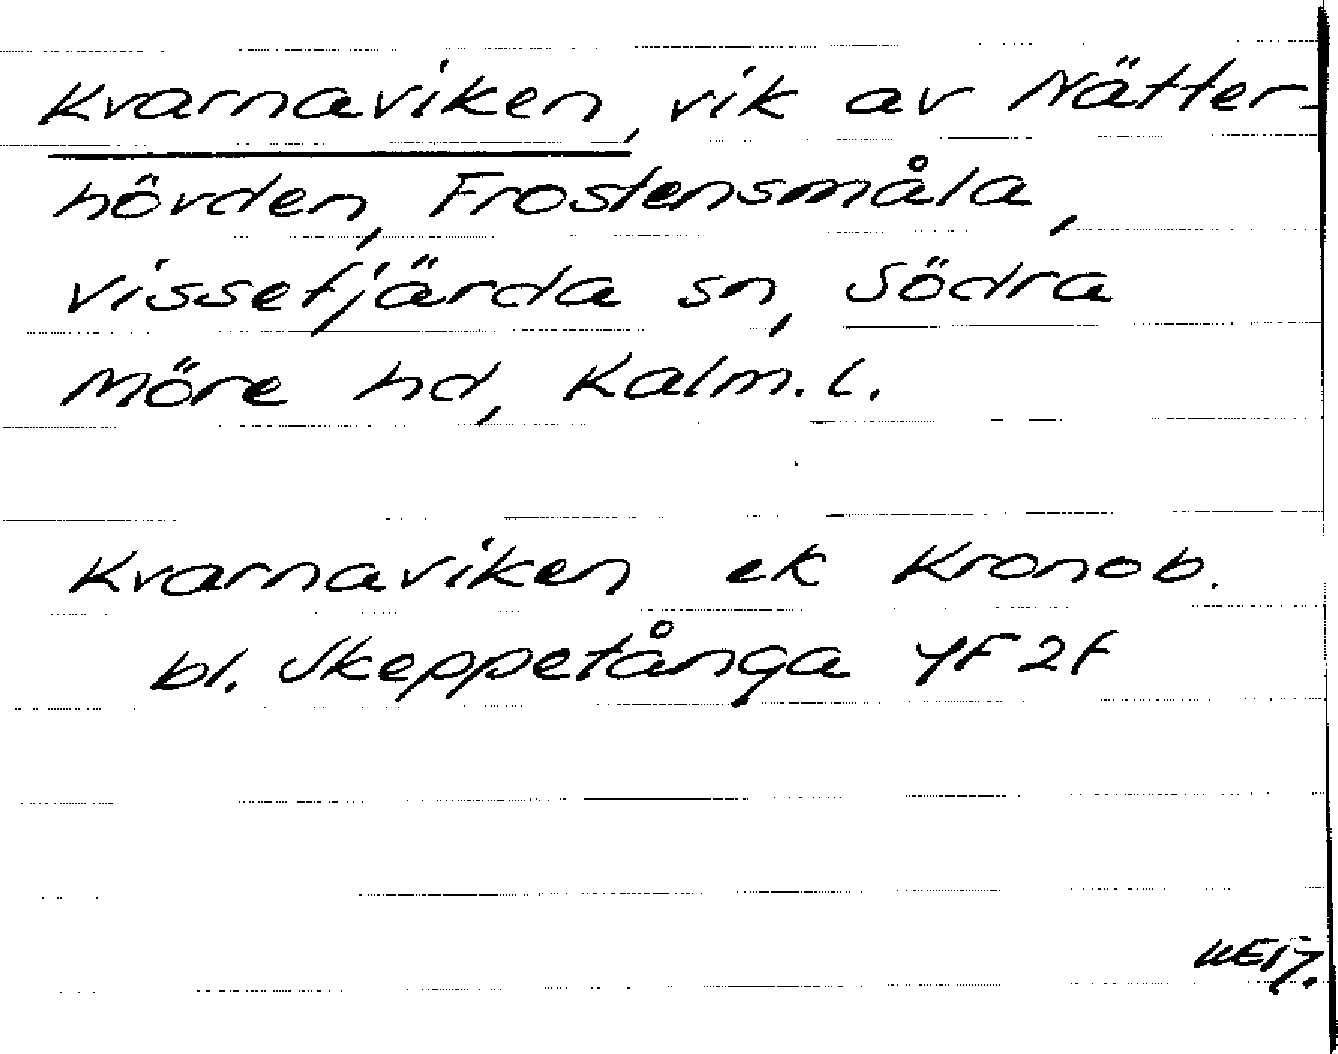 Kvarnaviken, vik av Nätter-
hövden, Frostensmåla,
Vissefjärda sn, Södra
Möre hd, Kalm. l.
Kvarnaviken ek Kronob.
bl. Skeppetånga 4F 2f